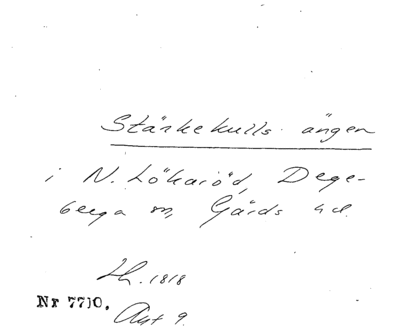 Stärkekulls ängen
i N. Lökaröd, Dege-
berga sn, Gärds hd.
1818
Nr 7710.
Akt 9.